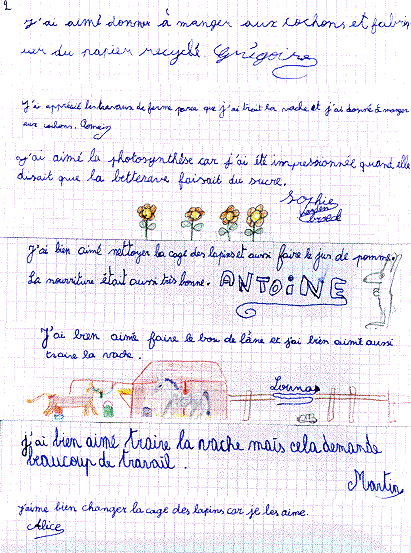 2
J'ai aimé donner à manger aux cochons et fabri
uer du papier recyclé. Grégoire
J'ai apprécié les travaux de ferme parce que j'ai trait la vache et j'ai donné à manger
aux cochons. Romain
J'ai aimé la photosynthèse car j'ai été impressionnée quand elle
disait que la betterave faisait du sucre.
Sophie
J'ai bien aimé nettoyer la cage des lapins et aussi faire le jus de pomme.
La nourriture était aussi très bonne. ANTOINE
J'ai bien aimé faire le box de l'âne et j'ai bien aimé aussi
traire la vache.
Louna
J'ai bien aimé traire la vache mais cela demande
beaucoup de travail.
Martin
J'aime bien changer la cage des lapins car je les aime.
Alice